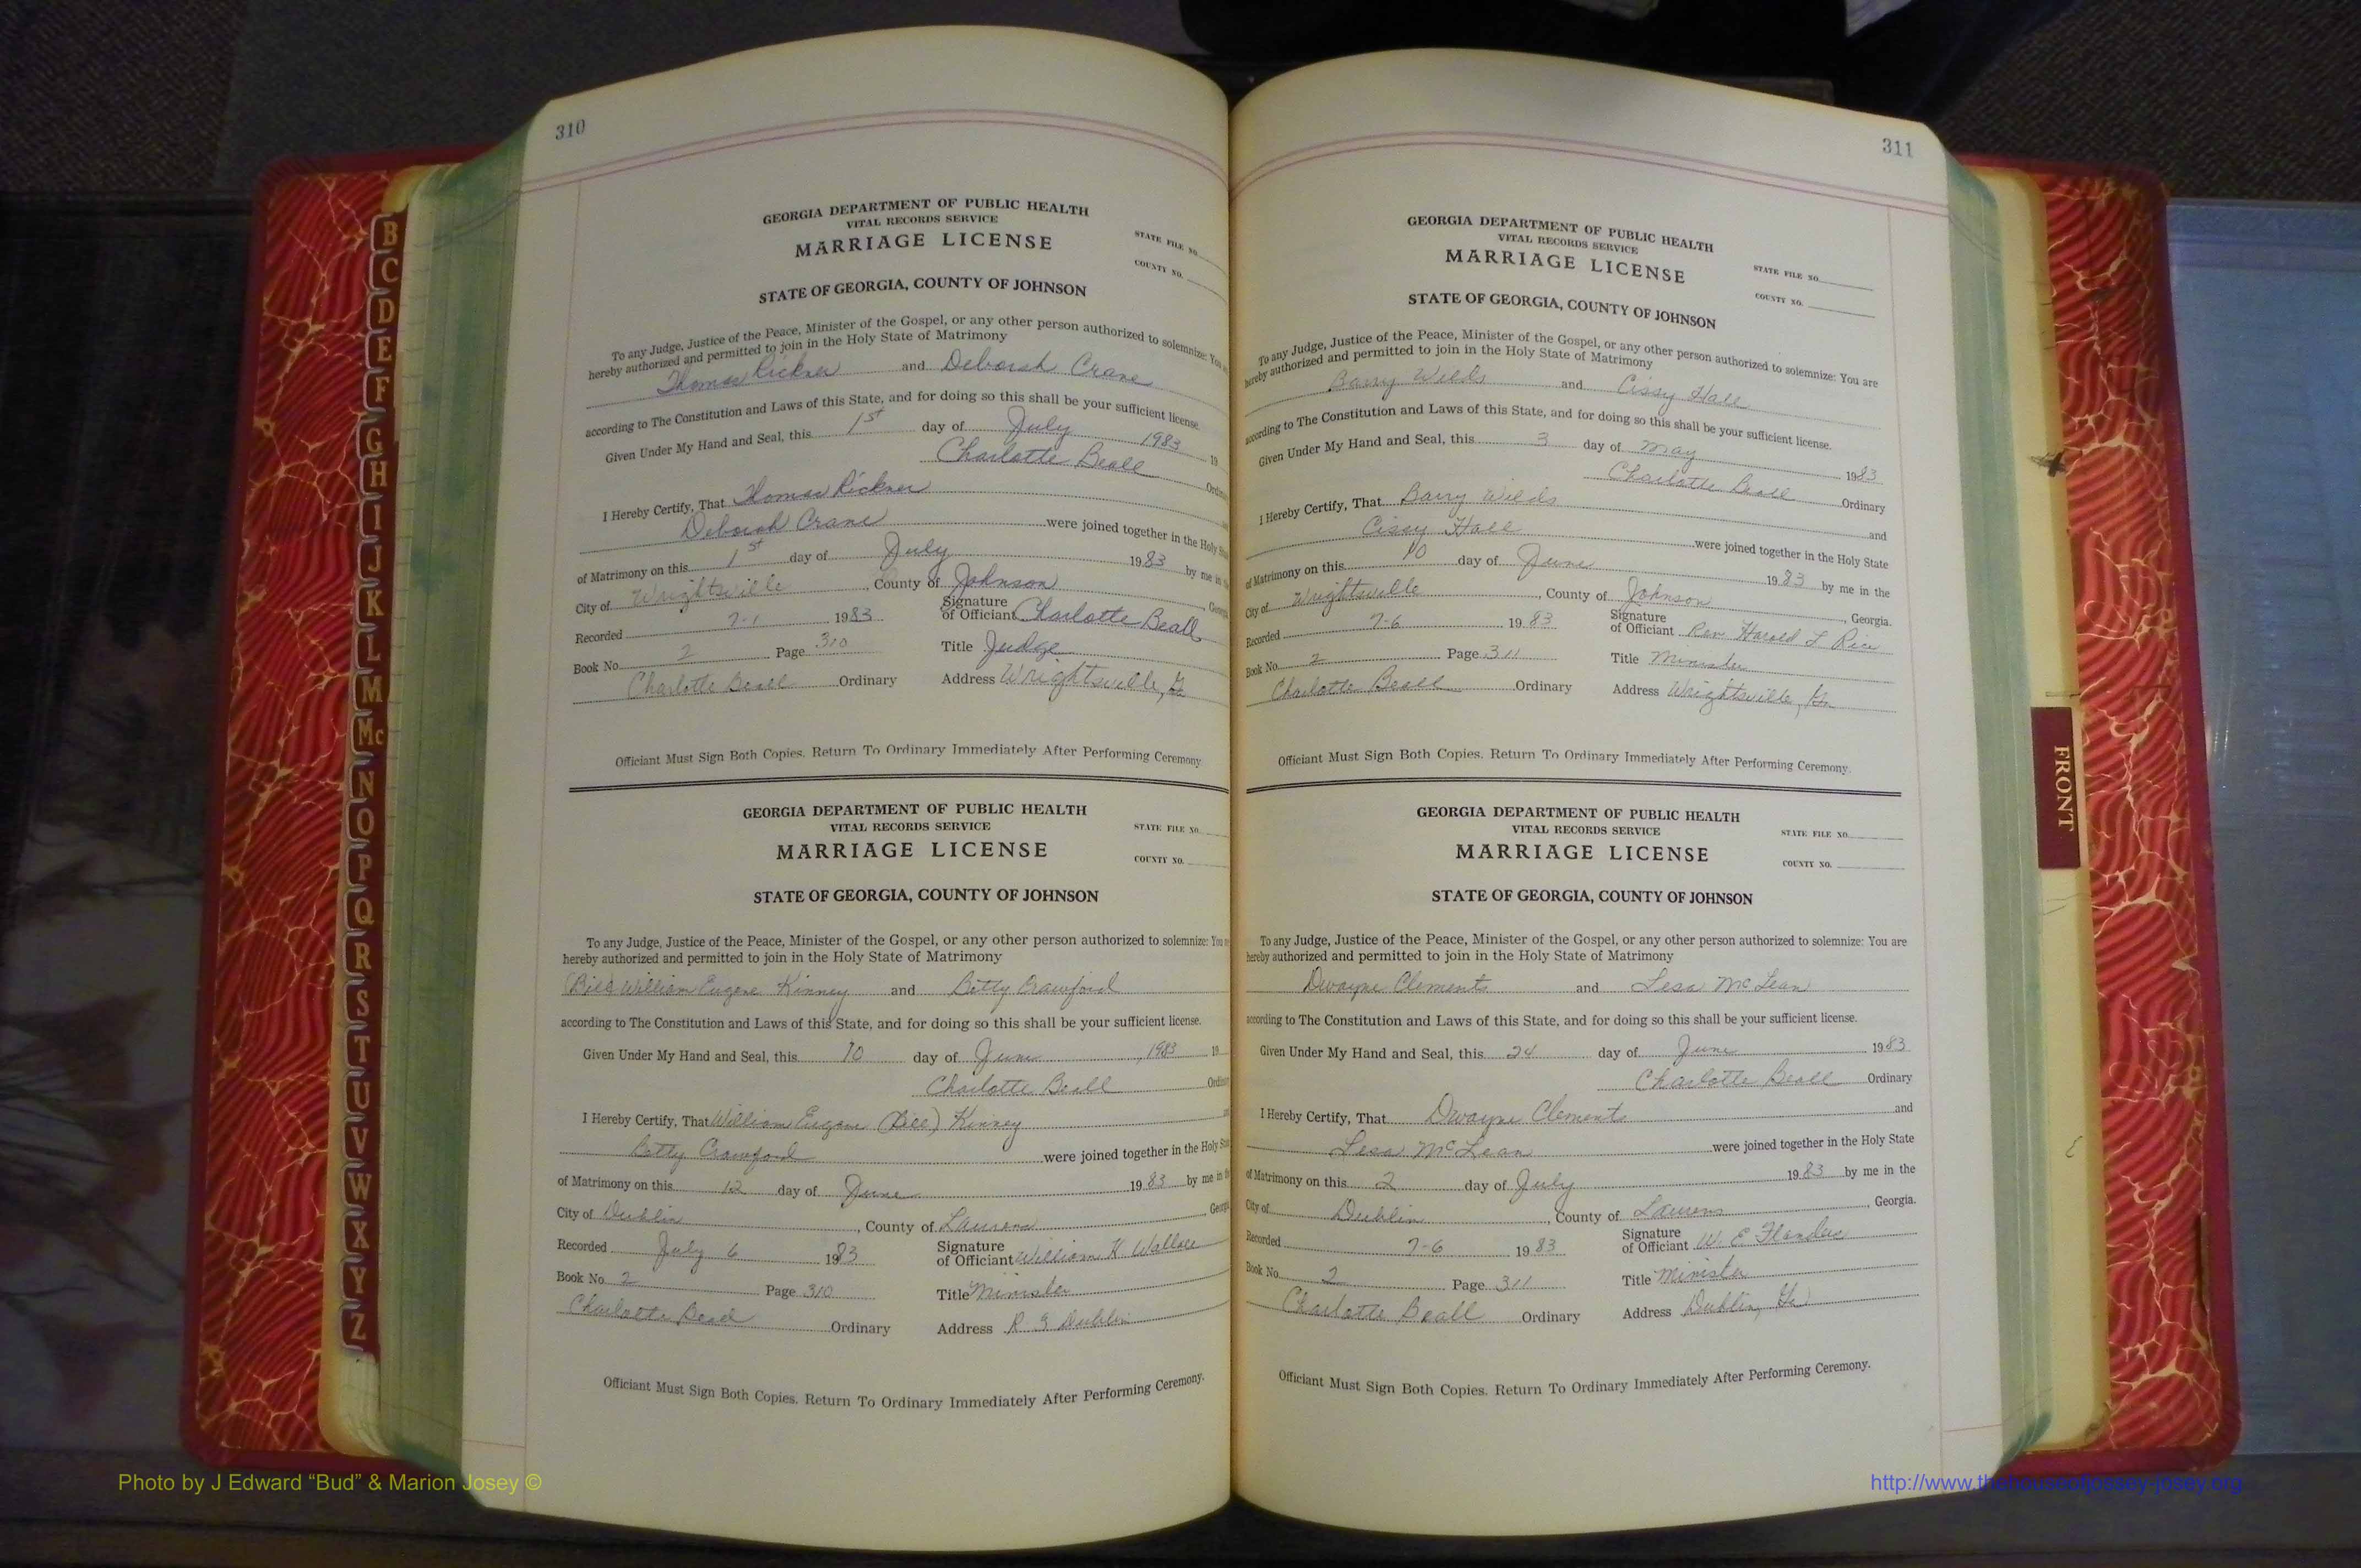 310
GEORGIA DEPARTMENT OF PUBLIC HEALTH
VITAL RECORDS SERVICE
MARRIAGE LICENSE
STATE FILE NO.
COUNTY NO.
STATE OF GEORGIA, COUNTY OF JOHNSON
To any Judge, Justice of the Peace, Minister of the Gospel, or any other person authorized to solemnize: You
hereby authorized and permitted to join in the Holy State of Matrimony
Thomas Rickner and Deborah Crane
according to The Constitution and Laws of this State, and for doing so this shall be your sufficient license.
Given Under My Hand and Seal, this 1st day of July 1983 19
Charlotte Beall
I Hereby Certify, That Thomas Rickner
Deborah Crane were joined together in the Holy
of Matrimony on this 1st day of July 1983 by me in
City of Wrightsville, County of Johnson
Recorded 7-1 1983 Signature of Official Charlotte Beall
Book No. 2 Page 310 Title Judge
Charlotte Beall Ordinary Address Wrightsville, Ga
Officiant Must Sign Both Copies. Return To Ordinary Immediately After Performing Ceremony.
GEORGIA DEPARTMENT OF PUBLIC HEALTH
VITAL RECORDS SERVICE
MARRIAGE LICENSE
STATE FILE NO.
COUNTY NO.
STATE OF GEORGIA, COUNTY OF JOHNSON
To any Judge, Justice of the Peace, Minister of the Gospel, or any other person authorized to solemnize: You
hereby authorized and permitted to join in the Holy State of Matrimony
(Bill) William Eugene Kinney and Betty Crawford
according to The Constitution and Laws of this State, and for doing so this shall be your sufficient license.
Given Under My Hand and Seal, this 10 day of June, 1983 19
Charlotte Beall
I Hereby Certify, That William Eugene (Bill) Kinney
Betty Crawford were joined together in the Holy
of Matrimony on this 12 day of June 1983 by me in
City of Dublin, County of Laurens
Recorded July 6 1983 Signature of Official William K. Wallace
Book No. 2 Page 310 Title Minister
Charlotte Beall Ordinary Address R 3 Dublin
Officiant Must Sign Both Copies. Return To Ordinary Immediately After Performing Ceremony.
311
GEORGIA DEPARTMENT OF PUBLIC HEALTH
VITAL RECORDS SERVICE
MARRIAGE LICENSE
STATE FILE NO.
COUNTY NO.
STATE OF GEORGIA, COUNTY OF JOHNSON
To any Judge, Justice of the Peace, Minister of the Gospel, or any other person authorized to solemnize: You are
hereby authorized and permitted to join in the Holy State of Matrimony
Barry Wilds and Cissy Hall
according to The Constitution and Laws of this State, and for doing so this shall be your sufficient license.
Given Under My Hand and Seal, this 3 day of May 1983
Charlotte Beall Ordinary
I Hereby Certify, That Barry Wilds and
Cissy Hall were joined together in the Holy State
of Matrimony on this 10 day of June 1983 by me in the
City of Wrightsville, County of Johnson, Georgia.
Recorded 7-6 1983 Signature of Official Rev. Harold L Rice
Book No. 2 Page 311 Title Minister
Charlotte Beall Ordinary Address Wrightsville, Ga
Officiant Must Sign Both Copies. Return To Ordinary Immediately After Performing Ceremony.
GEORGIA DEPARTMENT OF PUBLIC HEALTH
VITAL RECORDS SERVICE
MARRIAGE LICENSE
STATE FILE NO.
COUNTY NO.
STATE OF GEORGIA, COUNTY OF JOHNSON
To any Judge, Justice of the Peace, Minister of the Gospel, or any other person authorized to solemnize: You are
hereby authorized and permitted to join in the Holy State of Matrimony
Dwayne Clements and Lesa McLean
according to The Constitution and Laws of this State, and for doing so this shall be your sufficient license.
Given Under My Hand and Seal, this 24 day of June 1983
Charlotte Beall Ordinary
I Hereby Certify, That Dwayne Clements and
Lesa McLean were joined together in the Holy State
of Matrimony on this 2 day of July 1983 by me in the
City of Dublin, County of Laurens, Georgia.
Recorded 7-6 1983 Signature of Official W. E Flanders
Book No. 2 Page 311 Title Minister
Charlotte Beall Ordinary Address Dublin, Ga
Officiant Must Sign Both Copies. Return To Ordinary Immediately After Performing Ceremony.
B
C
D
E
F
G
H
I
J
K
L
M
Mc
N
O
P
Q
R
S
T
U
V
W
X
Y
Z
FRONT
Photo by J Edward “Bud” & Marion Josey ©
http://www.thehouseofjossey-josey.org